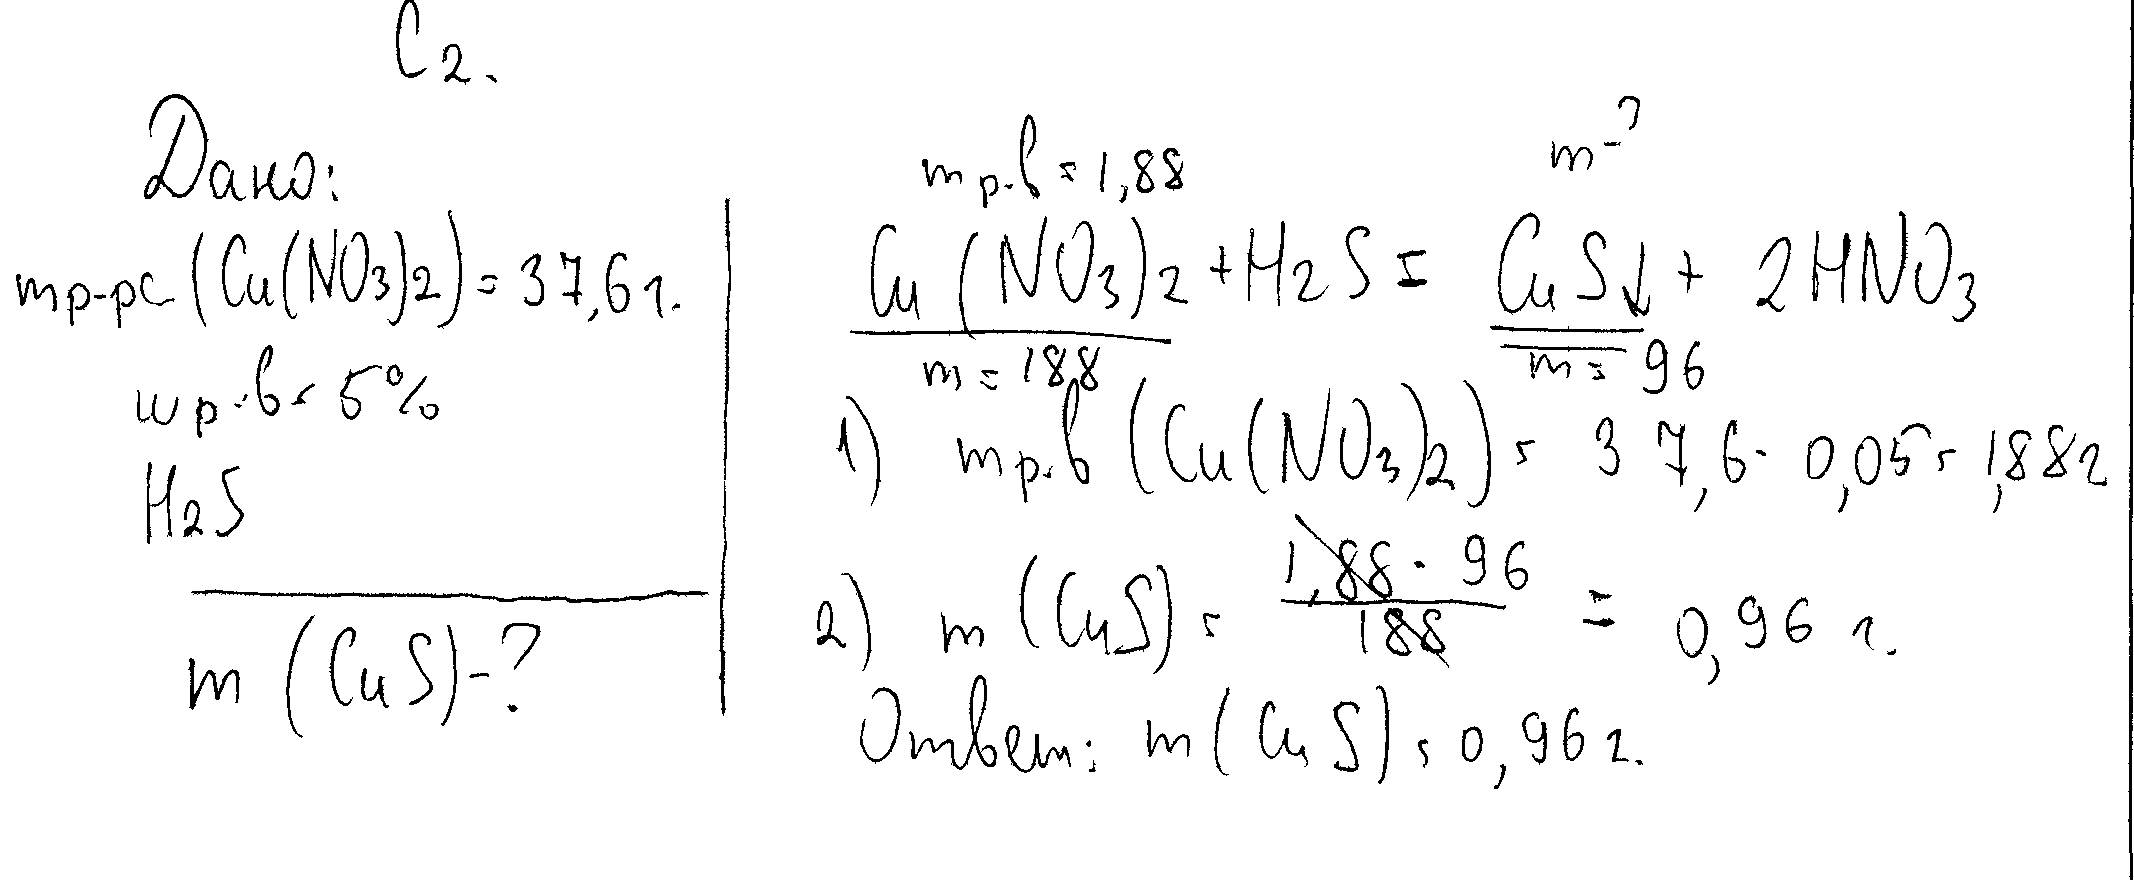 C2.
Дано:
mр-ра (Cu(NO3)2) = 37,6 г.
wр.в = 5%
H2S
m (CuS) - ?
mр.в = 1,88
m - ?
Cu(NO3)2 + H2S = CuS↓ + 2HNO3
m = 188
m = 96
1) mр.в (Cu(NO3)2) = 37,6 · 0,05 = 1,88 г
2) m (CuS) = 1,88 · 96 / 188 = 0,96 г.
Ответ: m (CuS) = 0,96 г.